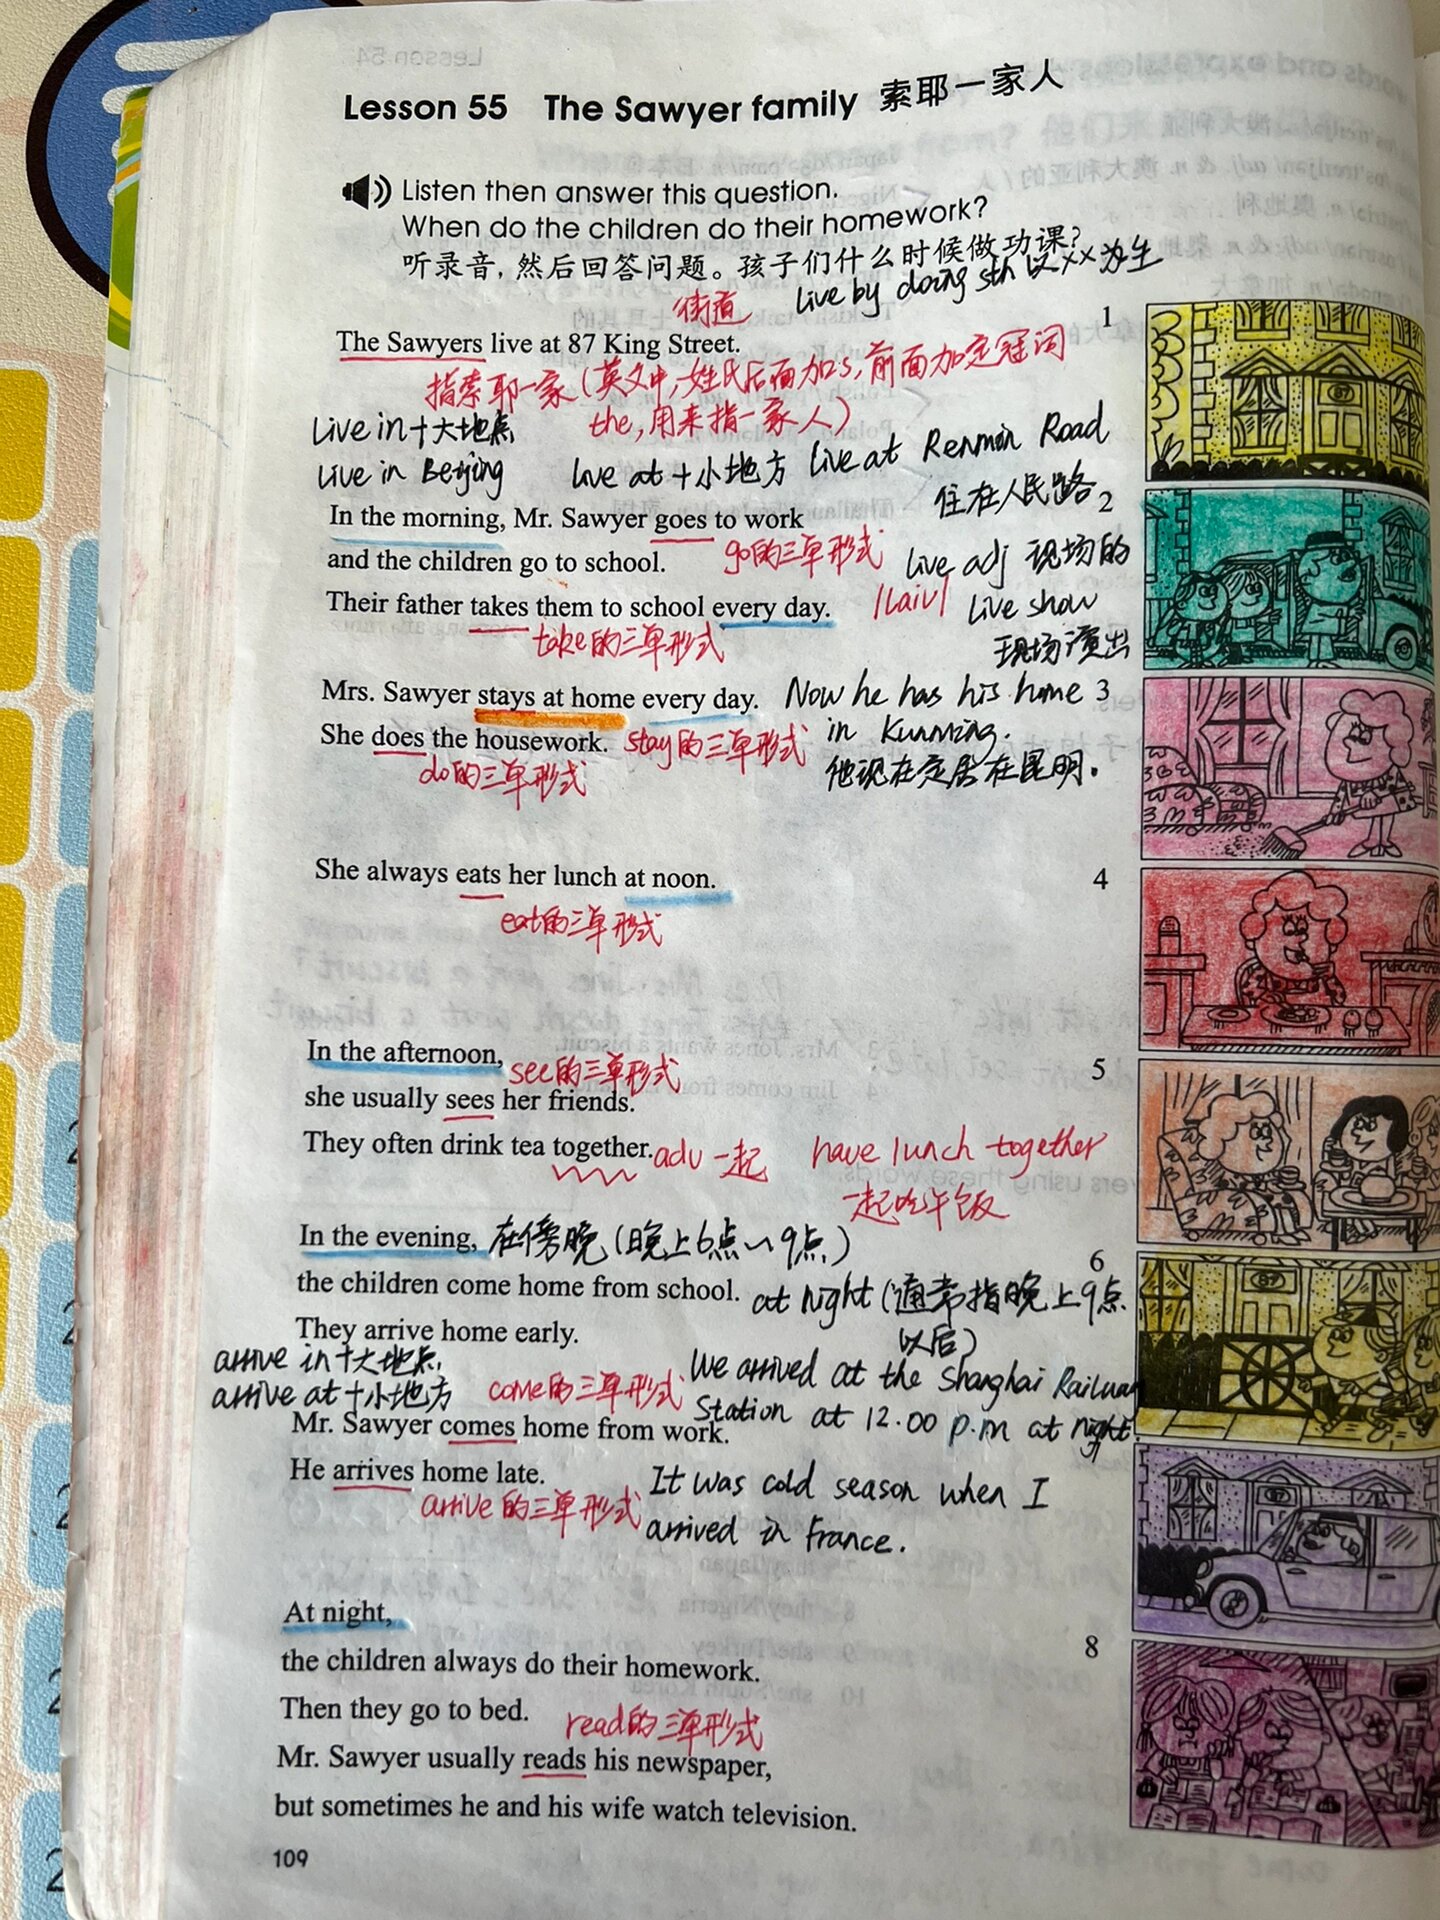 Lesson 55 The Sawyer family 索耶一家人
Listen then answer this question.
When do the children do their homework?
听录音，然后回答问题。孩子们什么时候做功课？
live by doing sth 以××为生
街道
1
The Sawyers live at 87 King Street.
指索耶一家（英文中,姓氏后面加s,前面加定冠词
the,用来指一家人）
live in+大地点
live in Beijing
live at+小地方 live at Renmin Road
住在人民路
2
In the morning, Mr. Sawyer goes to work
go的三单形式
and the children go to school.
live adj 现场的
Their father takes them to school every day.
/laiv/ live show
take的三单形式
现场演出
Mrs. Sawyer stays at home every day.
Now he has his home
3
in Kunming.
She does the housework.
stay的三单形式
do的三单形式
他现在定居在昆明.
She always eats her lunch at noon.
4
eat的三单形式
In the afternoon,
see的三单形式
5
she usually sees her friends.
They often drink tea together.
adv 一起 have lunch together
一起吃午饭
In the evening,
在傍晚（晚上6点~9点）
6
the children come home from school.
at night（通常指晚上9点
以后）
They arrive home early.
arrive in+大地点
arrive at+小地方
come的三单形式
We arrived at the Shanghai Railway
Station at 12.00 p.m at night.
Mr. Sawyer comes home from work.
He arrives home late.
arrive的三单形式
It was cold season when I
arrived in France.
At night,
8
the children always do their homework.
Then they go to bed.
read的三单形式
Mr. Sawyer usually reads his newspaper,
but sometimes he and his wife watch television.
109